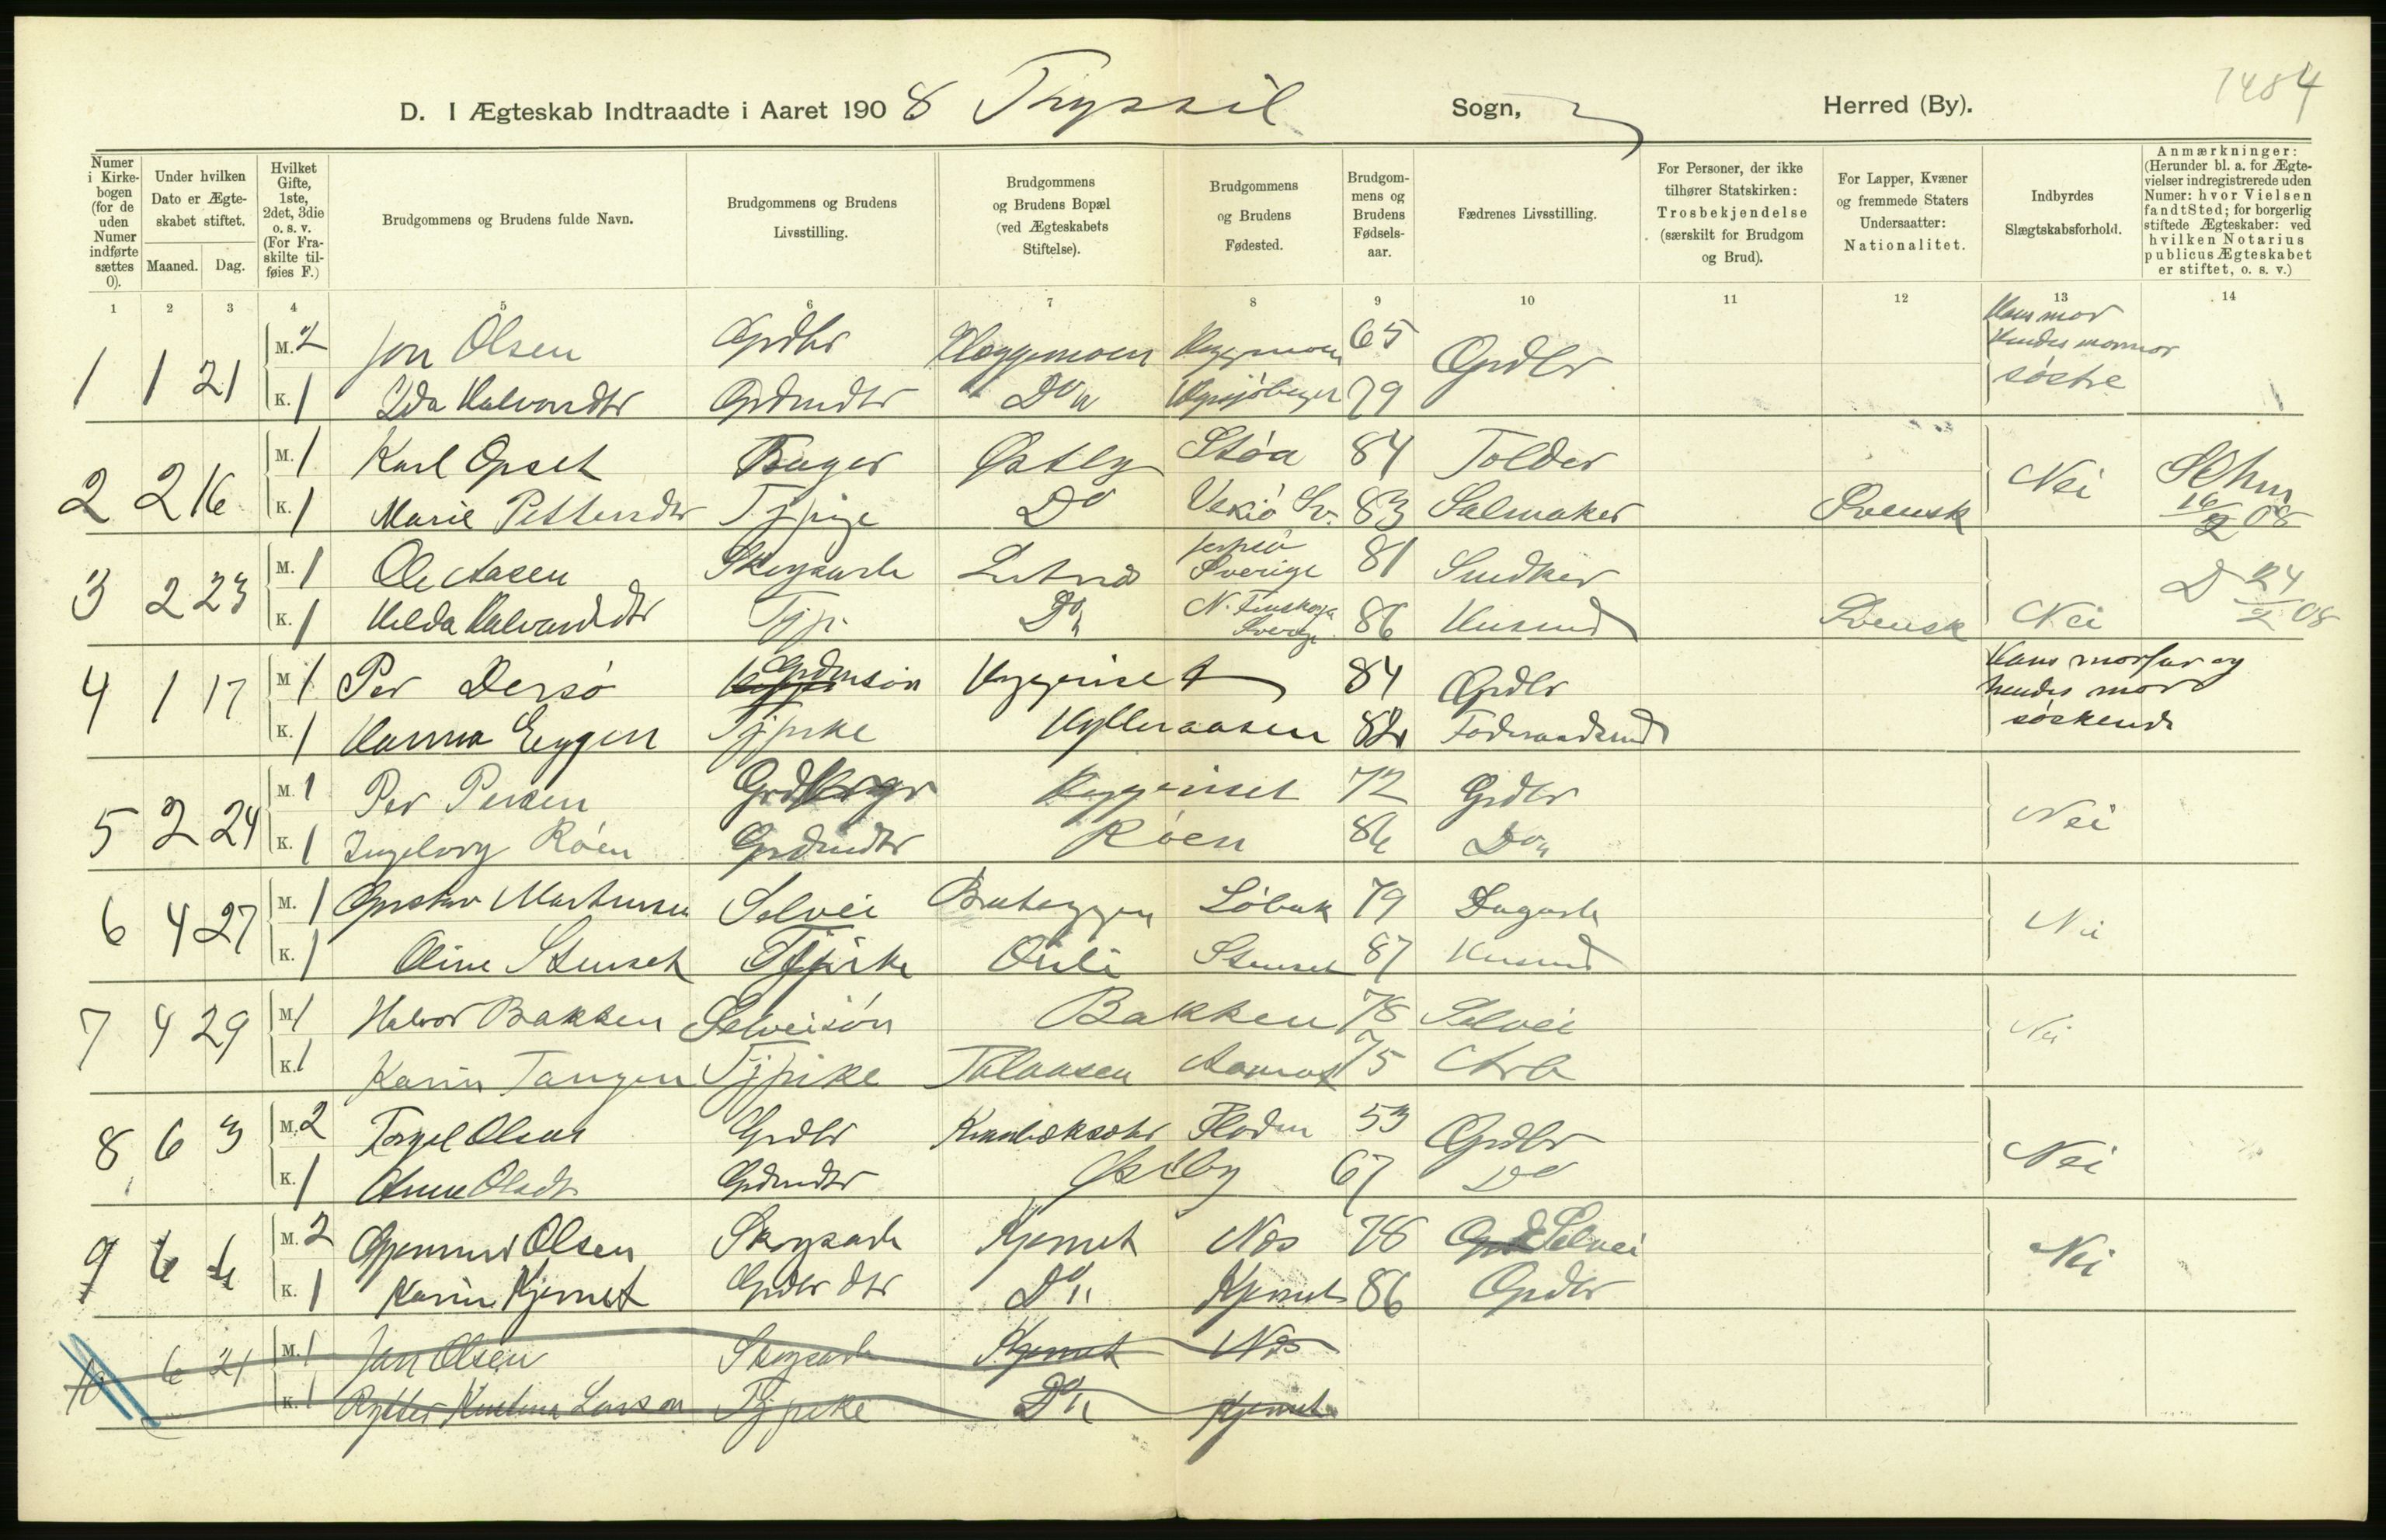 1484
D. I Ægteskab Indtraadte i Aaret 1908 Trysil Sogn, Herred (By).
Numer i Kirkebogen (for de uden Numer indførte sættes 0).
Under hvilken Dato er Ægteskabet stiftet.
Maaned. Dag.
Hvilket Gifte, 1ste, 2det, 3die o. s. v. (For Fraskilte tilføies F.)
Brudgommens og Brudens fulde Navn.
Brudgommens og Brudens Livsstilling.
Brudgommens og Brudens Bopæl (ved Ægteskabets Stiftelse).
Brudgommens og Brudens Fødested.
Brudgommens og Brudens Fødselsaar.
Fædrenes Livsstilling.
For Personer, der ikke tilhører Statskirken: Trosbekjendelse (særskilt for Brudgom og Brud).
For Lapper, Kvæner og fremmede Staters Undersaatter: Nationalitet.
Indbyrdes Slægtskabsforhold.
Anmærkninger: (Herunder bl. a. for Ægtevielser indregistrerede uden Numer: hvor Vielsen fandt Sted; for borgerlig stiftede Ægteskaber: ved hvilken Notarius publicus Ægteskabet er stiftet, o. s. v.)
1 2 3 4 5 6 7 8 9 10 11 12 13 14
1 1 21 M. 2 Jon Olsen Grdbr 65 Grdbr Hans mor
Hendes mormor
K. 1 Ida Halvordtr Grdmdtr Do 79 søstre
2 2 16 M. 1 Karl Opset Bager Østby Støa 84 Tolder Nei
K. 1 Marie Pettersdtr Tjpige Do Sv. 83 Salmaker Svensk 16/2 08
3 2 23 M. 1 Ole Aasen Skogsarb Lutnes Sverige 81 Snedker D 24/2 08
K. 1 Hilda Halvardsdtr Tjpi Do N. Finskoga Sverige 86 Husmd Svensk Nei
4 1 17 M. 1 Per Dersø Grdmsøn 84 Grdbr Hans morfar og
hendes mor
K. 1 Hanna Eggen Tjpike Hylleraasen 82 Foderaadsmd søskende
5 2 24 M. 1 Per Persen 72 Grdbr Nei
K. 1 Ingeborg Röen Grdmdtr Röen 86 Do
6 4 27 M. 1 Gustav Martinsen Selvei Løbak 79 Dagarb Nei
K. 1 Oline Stenset Tjpike Stenset 87 Husmd
7 4 29 M. 1 Halvor Bakken Selveisøn Bakken 78 Selvei Nei
K. 1 Karin Tangen Tjpike 75 Arb
8 6 3 M. 2 Torgel Olsen Grdbr Floden 53 Grdbr Nei
K. 1 Anne Olsdt Grdmdtr Østby 67 Do
9 6 6 M. 2 Gjermund Olsen Skogsarb Kjernet Nes 78 Selvei Nei
K. 1 Karin Kjernet Grdbr dtr Do Kjernet 86 Grdbr
10 6 21 M. 1 Jon Olsen Skogsarb Kjernet Nes
K. 1 Larsen Tjpike Do Kjernet